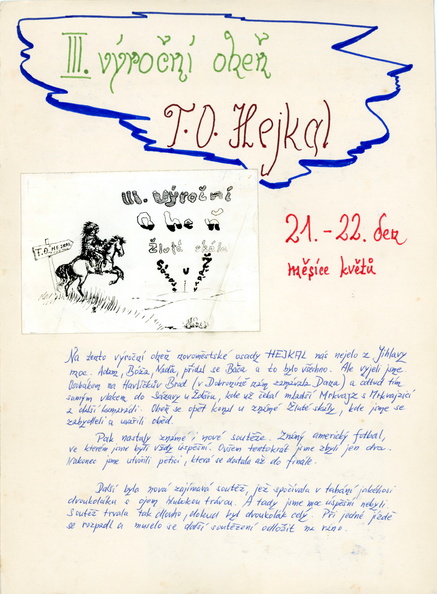 III. výroční oheň
T.O. Hejkal
III. Výroční
Oheň
Žlutá skála
T.O. HEJKAL
21. - 22. den
měsíce květů
Na tento výroční oheň novoměstské osady HEJKAL nás nejelo z Jihlavy
moc. Adam, Bóža, Naďa, přidal se Bača a to bylo všechno. Ale vyjeli jme
Osobákem na Havlíčkův Brod (v Dobroníně nám zamávala Dana) a odtud tím
samým vlakem do Sázavy u Žďáru, kde už čekal mladší Mokvajz s Mokvajzicí
a další kamarádi. Oheň se opět konal u známé Žluté skály, kde jsme se
zabydleli a uvařili oběd.
Pak nastaly známé i nové soutěže. Známý americký fotbal,
ve kterém jsme byli vždy úspěšní. Ovšem tentokrát jsme zbyli jen dva.
Nakonec jme utvořili pětici, která se dostala až do finále.
Další byla nová zajímavá soutěž, jež spočívala v tahání jakéhosi
dvoukoláku s ojem hlubokou trávou. A tady jsme moc úspěšní nebyli.
Soutěž trvala tak dlouho, dokud byl dvoukolák celý. Při jedné jízdě
se rozpadl a muselo se další soutěžení odložit na ráno.